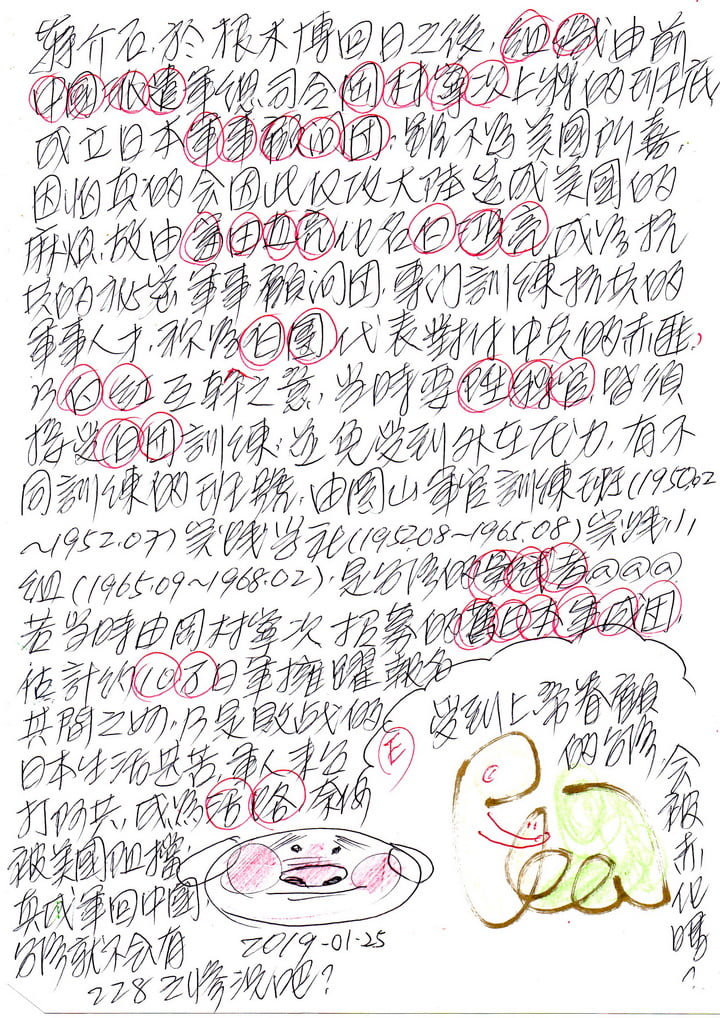 蔣介石,於根本博回日之後,組織由前
中國派遣軍總司令岡村寧次上將的班底
成立日本軍事顧問团,雖不為美國所喜,
因怕真的会因此反攻大陸造成美國的
麻煩,故由富田直亮化名白鴻亮成為抗
共的秘密軍事顧问团,專门訓練抗共的
軍事人才,称為白團代表對付中共的赤匪,
乃白紅互斬之意,当時要陞將官,皆須
接受白団訓練,並免受到外在阻力,有不
同訓練的班號,由圓山軍官訓練班(1950.02
~1952.07)実践学社(1952.08~1965.08)実践小
組(1965.09~1968.02),是台湾的守護者@@@
若当時由岡村寧次招募的舊日本軍成团,
估計約10万日軍擁躍報名
共間之妙,乃是敗战的
日本生活甚苦,軍人来台
打防共,成為活路,奈何
被美國阻擋,
真成軍回中國,
台湾就不会有
228之慘況吧?
受到上帝眷顧
的台湾,
会被赤化嗎?
E
2019-01-25